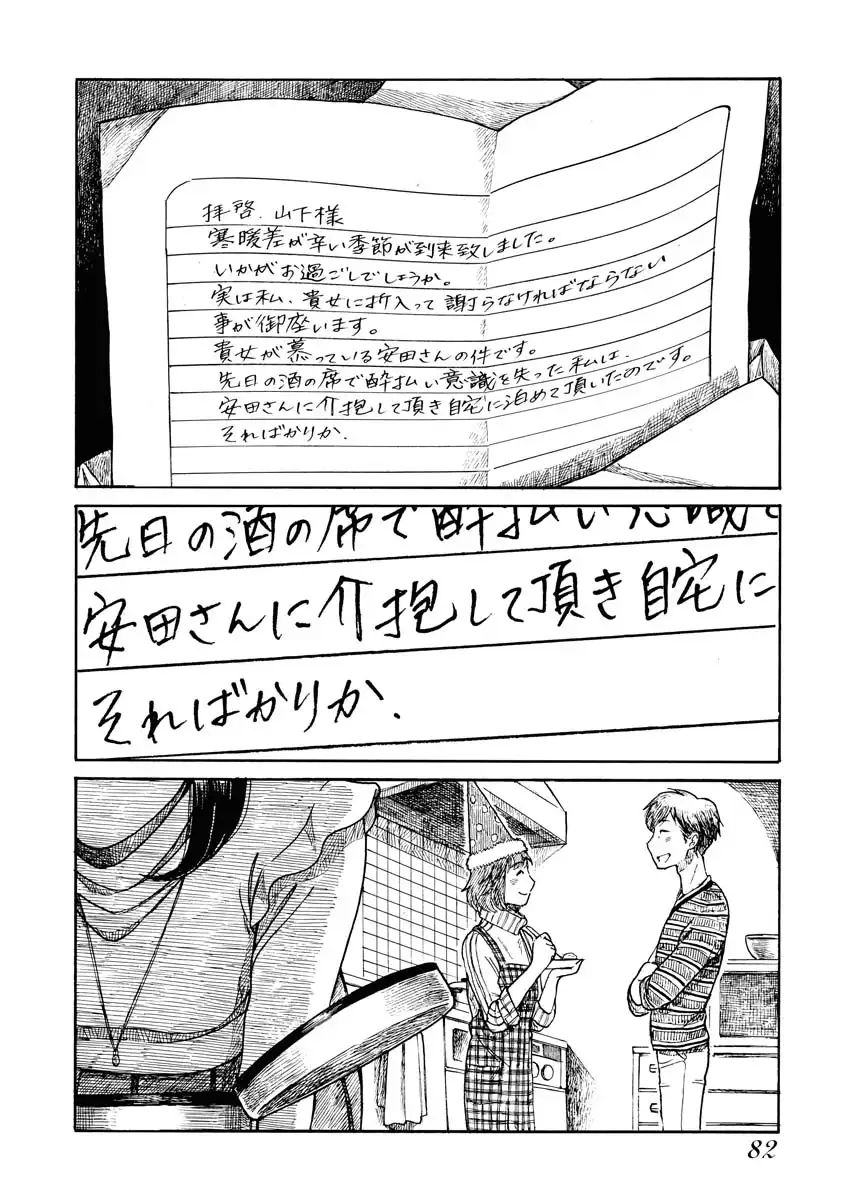 拝啓、山下様
寒暖差が辛い季節が到来致しました。
いかがお過ごしでしょうか。
実は私、貴女に折入って謝らなければならない
事が御座います。
貴女が慕っている安田さんの件です。
先日の酒の席で酔払い意識を失った私は、
安田さんに介抱して頂き自宅に泊めて頂いたのです。
そればかりか、
先日の酒の席で酔払い意識を
安田さんに介抱して頂き自宅に
そればかりか、
82